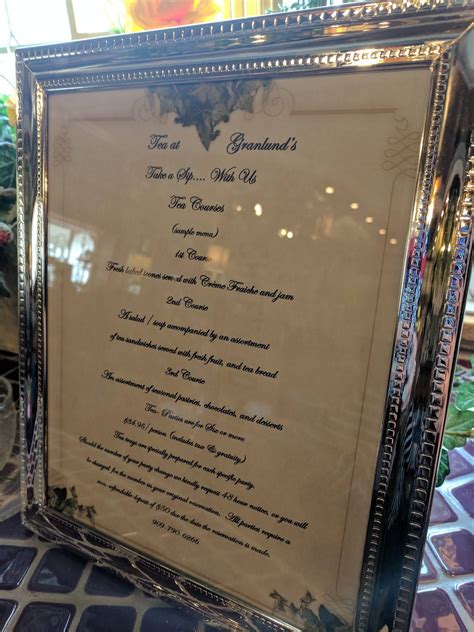 Tea at Granlund's
Take a Sip.... With Us
Tea Courses
(sample menu)
1st Course
Fresh baked scones served with Crème Fraiche and jam
2nd Course
A salad / soup accompanied by an assortment
of tea sandwiches served with fresh fruit, and tea bread
3rd Course
An assortment of seasonal pastries, chocolates, and desserts
Tea- Parties are for Six or more
($34.95/ person (includes tax & gratuity)
Tea trays are specially prepared for each specific party.
Should the number of your party change we kindly request 48 hour notice, or you will
be charged for the number in your original reservation. All parties require a
non-refundable deposit of $50 due the date the reservation is made.
909-790-6266